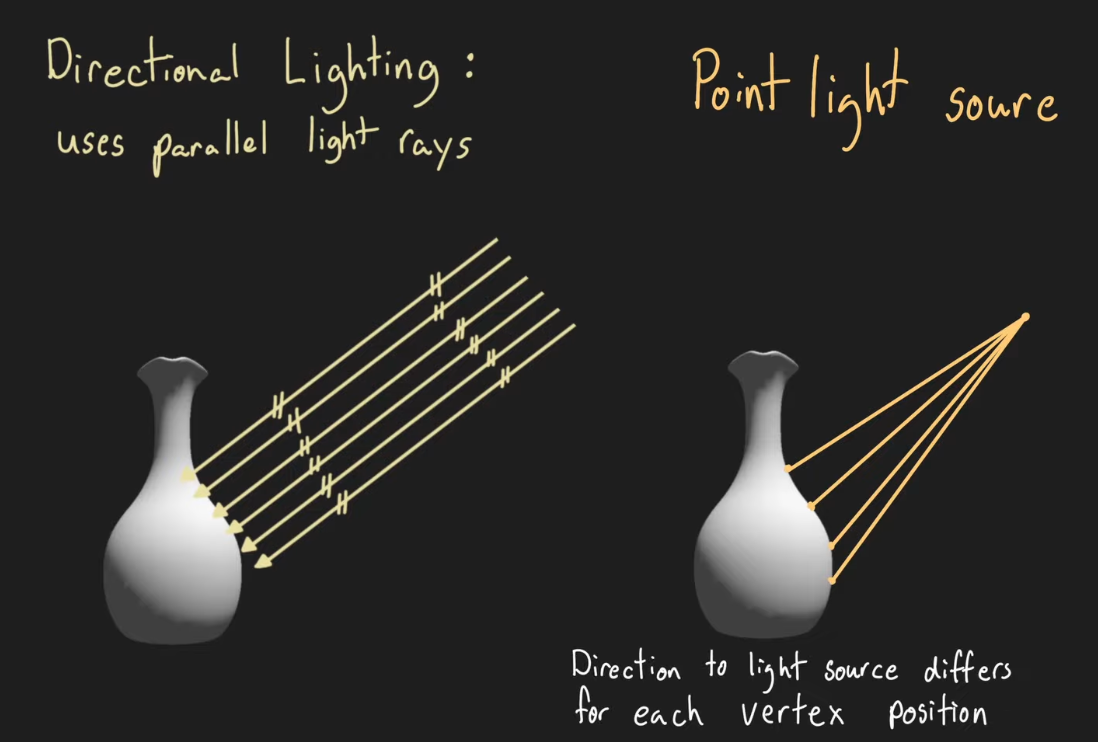 Directional Lighting :
uses parallel light rays
Point light soure
Direction to light source differs
for each vertex position